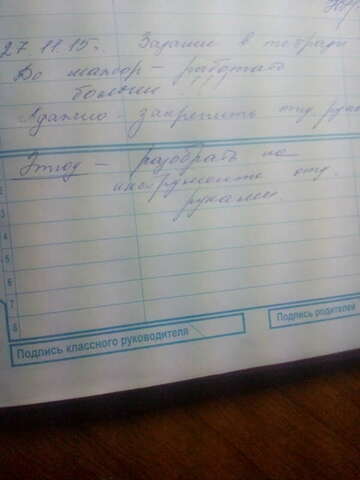 27.11.15г. Задание в тетради
До мажор - работать
более
Адажио - закрепить отд. рука
Этюд - разобрать на
инструменте отд.
руками.
2
3
4
5
6
7
8
Подпись классного руководителя
Подпись родителей